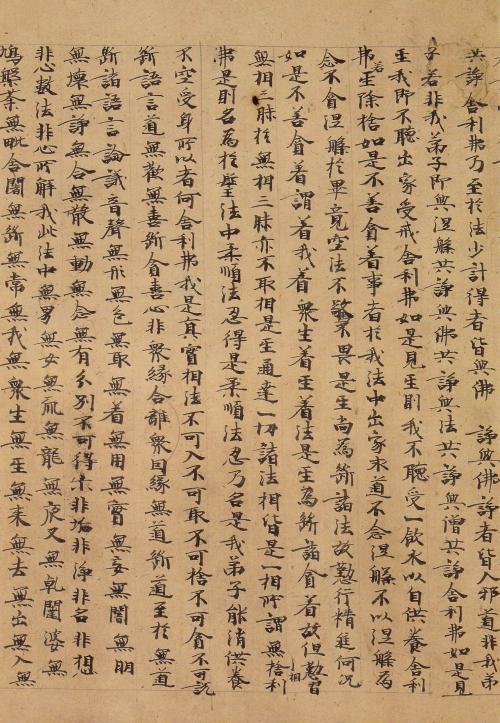 共諍舍利弗乃至於法少計得者皆與佛諍與佛諍者皆入邪道非我弟
子若非我弟子即與涅槃共諍與佛共諍與法共諍與僧共諍舍利弗如是見
主我即不聽出家受戒舍利弗如是見主則我不聽受一飲水以自供養舍利
弗若主除捨如是不善貪着事者於我法中出家求道不念涅槃不以涅槃為
念不貪涅槃於畢竟空法不驚不畏是主尚為斷諸法故懃行精進何況
如是不善貪着謂着我着衆生着主着法是主為斷諸貪着故但懃習
無相三昧於無相三昧亦不取相是主通達一切諸法相皆是一相所謂無捨利
弗是則名為於聖法中柔順法忍得是柔順法忍乃名是我弟子能消供養
不空受身所以者何舍利弗我是真實相法不可入不可取不可捨不可貪不可說
斷語言道無歡無喜斷貪喜心非衆緣合離衆因緣無道斷道至於無道
斷諸語言論議音聲無形無色無取無着無用無實無妄無闇無明
無壞無諍無合無散無動無念無有分別不可得非垢非淨非名非相
非心數法非心所解我此法中無男無女無龍無夜叉無乹闥婆無
鳩槃荼無毗舍闍無斷無常無我無衆生無生無來無去無出無入無